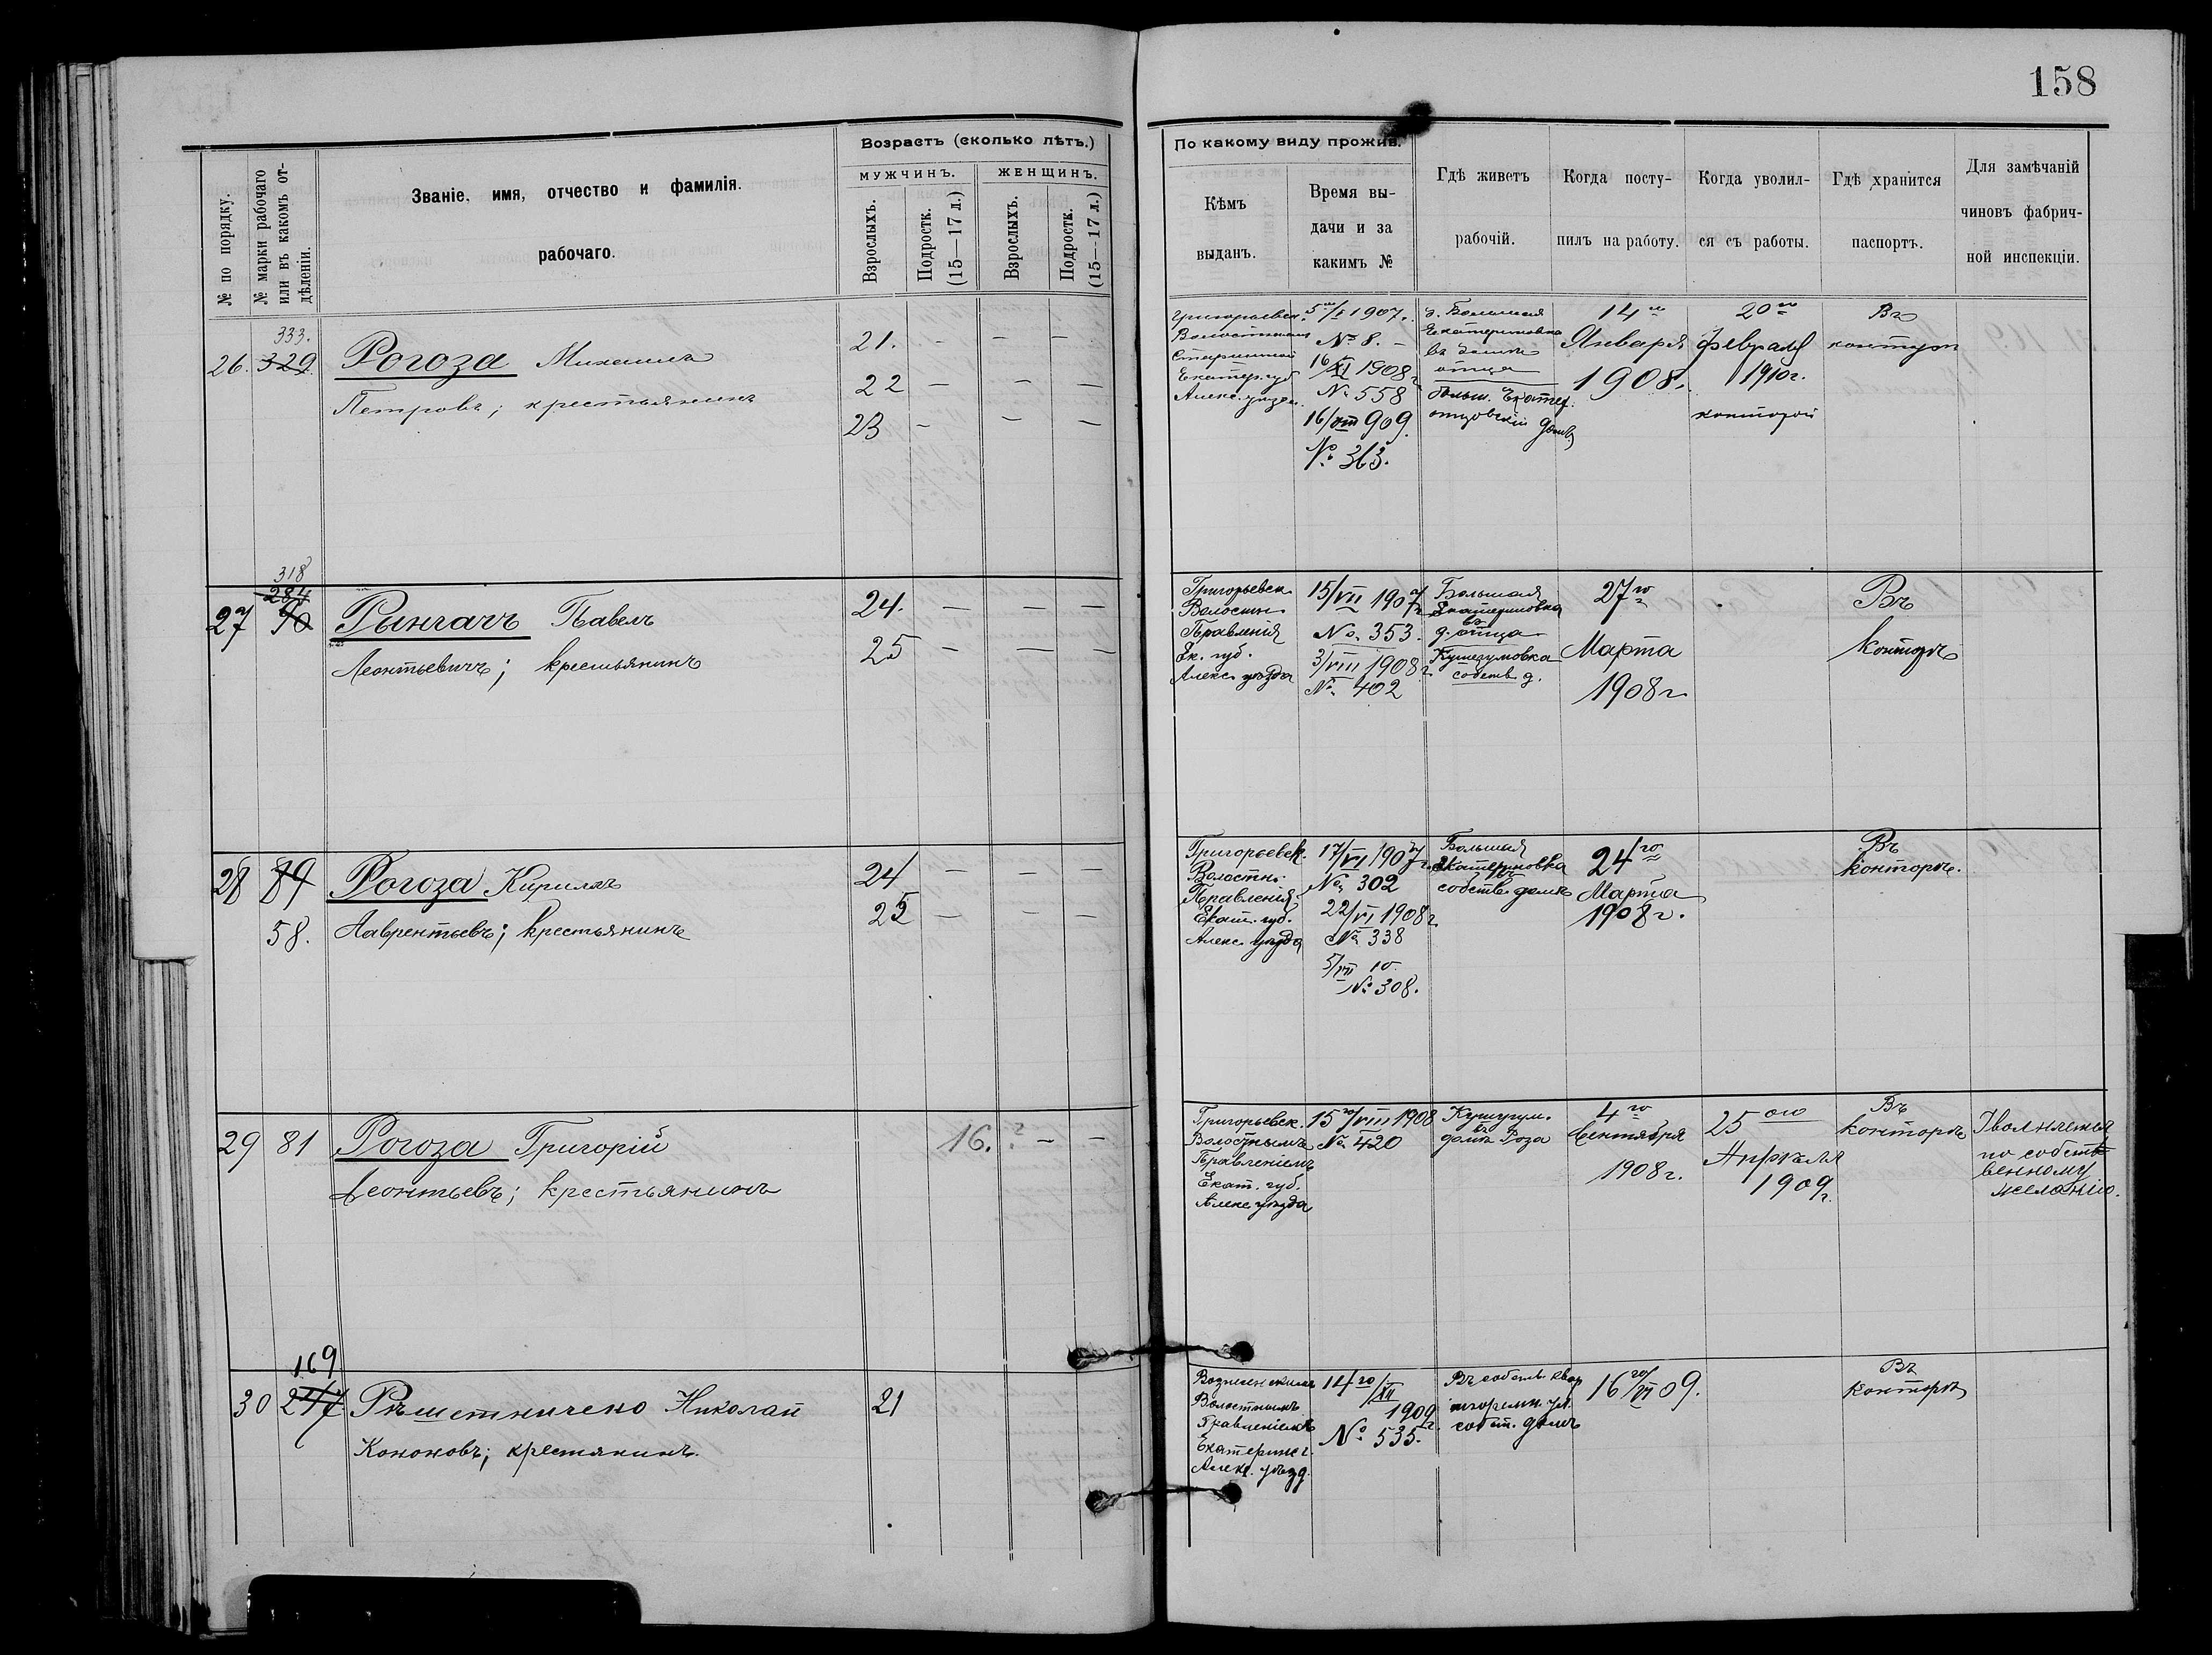 158
№ по порядку.
№ марки рабочаго
или въ какомъ от-
дѣленіи.
Званіе, имя, отчество и фамилія.
рабочаго.
Возрастъ (сколько лѣтъ.)
мужчинъ.
женщинъ.
Взрослыхъ.
Подростк.
(15—17 л.)
Взрослыхъ.
Подростк.
(15—17 л.)
По какому виду прожив.
Кѣмъ
выданъ.
Время вы-
дачи и за
какимъ №
Гдѣ живетъ
рабочій.
Когда посту-
пилъ на работу.
Когда уволил-
ся съ работы.
Гдѣ хранится
паспортъ.
Для замѣчаній
чиновъ фабрич-
ной инспекціи.
333.
26. 329
Рогоза Михаилъ
Петровъ; крестьянинъ
21. - - -
22 - - -
23 - - -
Григорьевск.
Волостнымъ
Старшиной
Екатер. губ
Алекс. уѣзда
1907 г.
№ 8. -
16/XI 1908 г
№ 558
16/VIII 909.
№ 363.
Большая
Екатериновка
въ домѣ
отца
больш. Екатер.
отцовскій домъ
14го
Января
1908 г.
20го
Февраля
1910 г.
конторой
Въ
318
284
27 90
Рынгачъ Павелъ
Леонтьевичъ; крестьянинъ
24. - - -
25 - - -
Григорьевск.
Волостн.
Правленія
Ек. губ.
Алекс. уѣзда
15/VII 1907 г.
№ 353.
3/VIII 1908 г.
№ 402
Большая
Екатериновка
въ
д. отца
Кушугумовка
собств. д.
27го
Марта
1908 г.
Въ
Конторѣ
28 89
58.
Рогоза Кириллъ
Лаврентьевъ; крестьянинъ
24 - - -
25 - - -
Григорьевск.
Волостн.
Правленія
Екат. губ.
Алекс. уѣзда
17/VI 1907 г.
№ 302
22/VI 1908 г.
№ 338
5/VII 10
№ 308.
Большая
Екатериновка
собств. домъ
24го
Марта
1908 г.
Въ
конторѣ.
29 81
Рогоза Григорій
Леонтьевъ; крестьянинъ
16. ? - -
Григорьевск.
Волостнымъ
Правленіемъ
Екат. губ.
Алекс. уѣзда
15го/VIII 1908
№ 420
Кушугум.
въ
домѣ Роза
4го
Сентября
1908 г.
25ого
Апрѣля
1909 г.
Въ
конторѣ
Уволняется
по собст-
венному
желанію.
169
30 247
Рѣшетниченко Николай
Кононовъ; крестянинъ.
21
Вознесенскимъ
Волостнымъ
Правленіемъ
Екатерин. г.
Алекс. уѣзд.
14го/XII
1909 г.
№ 535.
Въ собств. квар
собст. домъ
16го/VI 09.
Въ
конторѣ